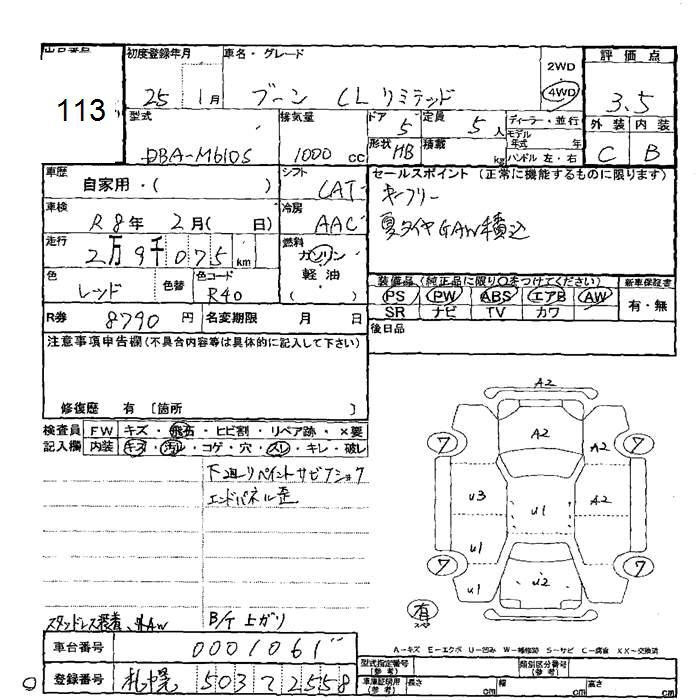 出品番号 初度登録年月 車名・グレード 評価点
113
25 1月 ブーン CL リミテッド 2WD 4WD 3.5
型式 排気量 ドア 5 定員 5人 ディーラー・並行 外装 内装
DBA-M610S 1000cc 形状 HB 積載 kg モデル年式 年 ハンドル 左・右 C B
車歴 シフト セールスポイント (正常に機能するものに限ります)
自家用・( ) CAT キーフリー
車検 R8年 2月( 日) 冷房 AAC 夏タイヤGAW積込
走行 2万9千075km 燃料 ガソリン・軽油・( )
色 レッド 色替 色コード R40
装備品(純正品に限り○をつけてください) 新車保証書
PS PW ABS エアB AW 有・無
SR ナビ TV カワ
R券 8790円 名変期限 月 日 後日品
注意事項申告欄(不具合内容等は具体的に記入して下さい)
修復歴 有 [箇所 ]
検査員 FW キズ・飛石・ヒビ割・リペア跡・×要
記入欄 内装 キズ・汚レ・コゲ・穴・スレ・キレ・破レ
下廻リペイントサビテショク
エンドパネル歪
A2
A2 A2
7 7
U3 U1 A2
U1
7 7
U1 U2
有
スタッドレス装着、外AW B/T上ガリ
A−キズ E−エクボ U−凹み W−補修跡 S−サビ C−腐食 XX−交換済
車台番号 0001061
型式指定番号(参考) 類別区分番号(参考)
登録番号 札幌 503 7 2558
車庫証明用(参考) 長さ cm 幅 cm 高さ cm